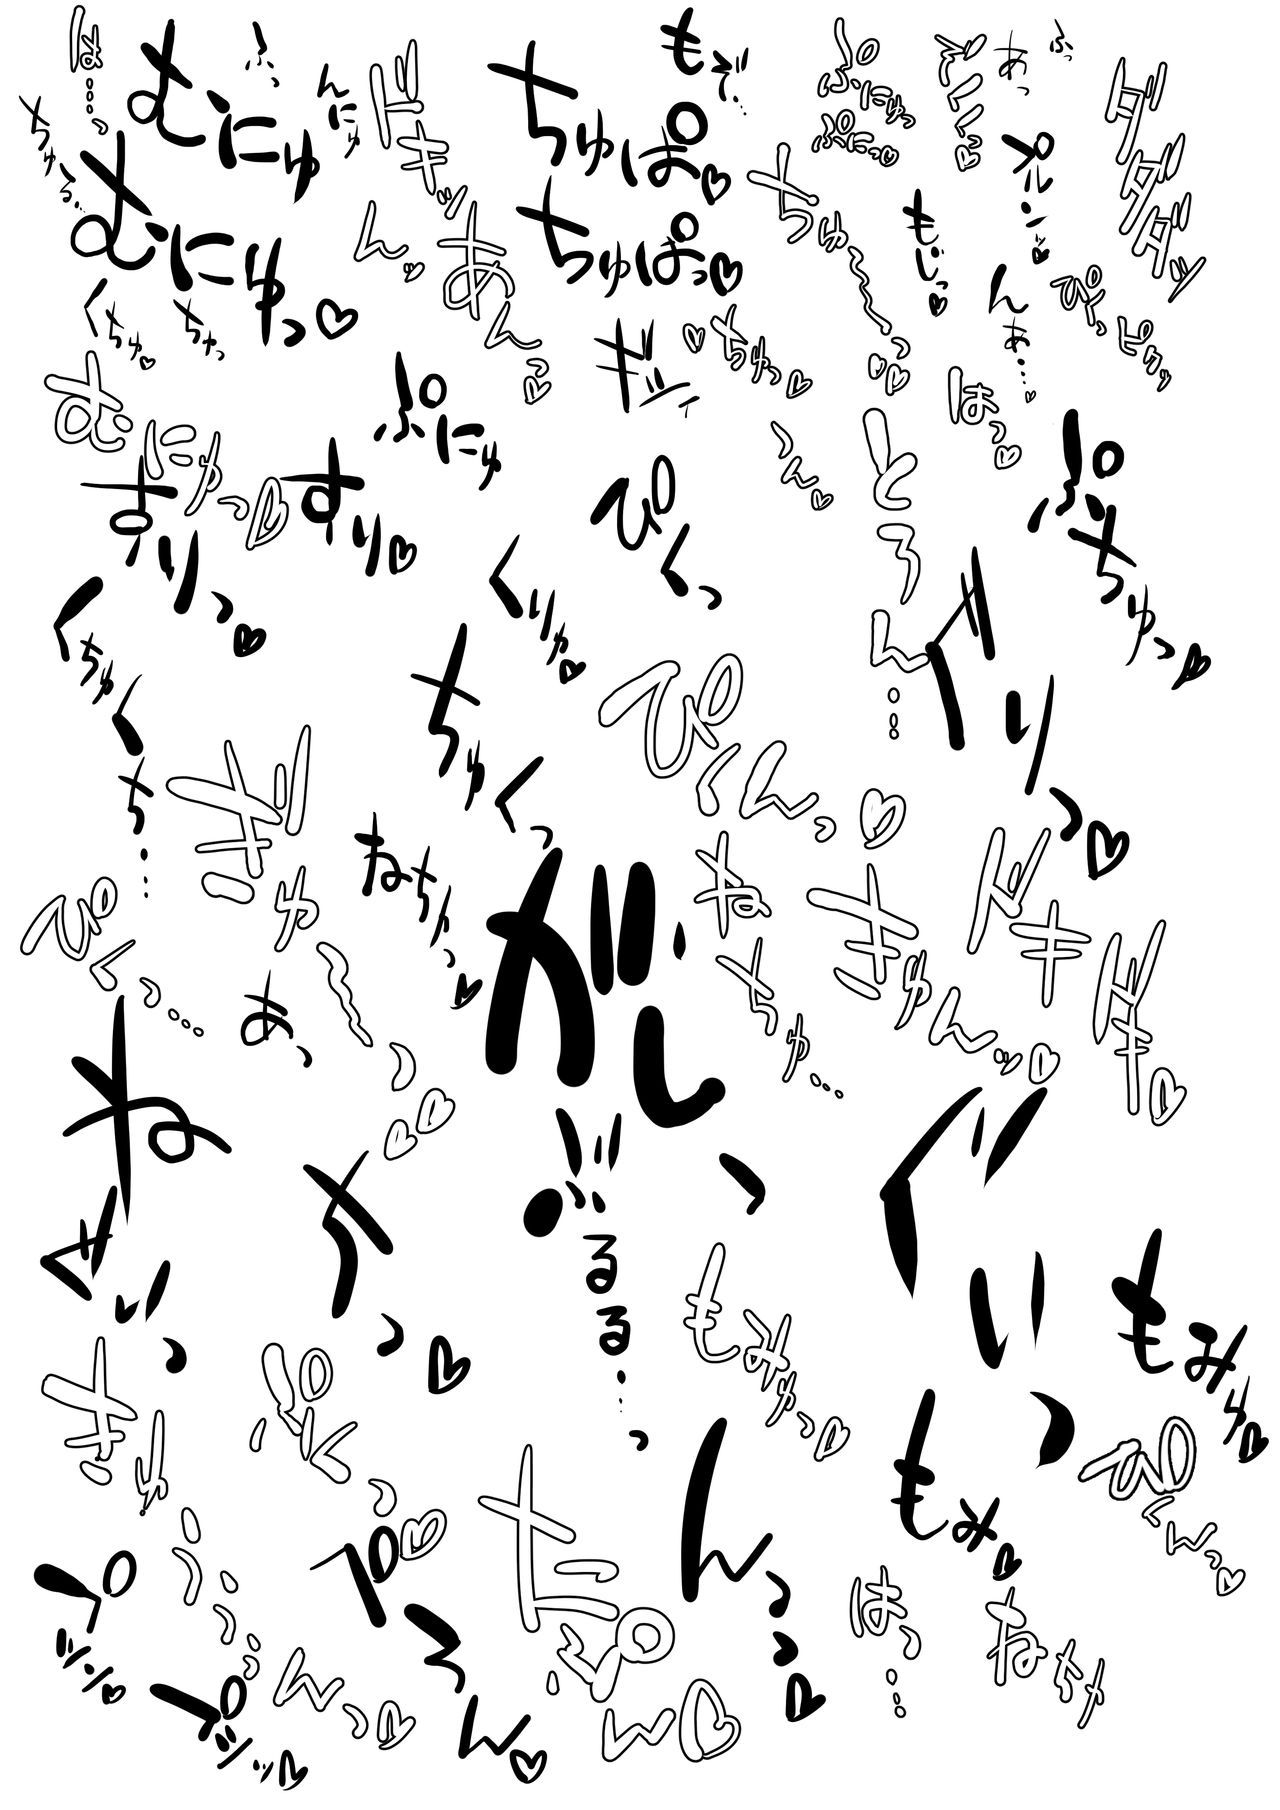 は…っ
むにゅ
ぷ…
んにゅ
ドキッ
ちゅぱ♡
もぞ…
ぷにゅっ
ぷにっ♡
あっ
ぷ…
ダダダッ
ちゅる…
むにゅっ♡
んッ
あんっ♡
ちゅぱっ♡
ちゅ～～っ♡♡
もじっ♡
プルンッ♡
んあ…♡
ピクッ
くちゅ♡
ちゅっ
ギシィ
♡ちゅっ♡
はっ♡
むにゅっ♡
ぷにゅ
うん♡
とろん…
ぷちゅっ♡
すりっ♡
すり♡
ぴくっ
くちゅ
くりゅ♡
ぐりっ♡
くち…
ちゅくっ
ぴくんっ♡
ぎゅ～～っ♡♡
ねちゅっ♡
がしっ
ねちゅ…
きゅんッ♡
ドキドキ♡
ぴくっ…
あっ
ぐいっ
ねちっ♡
ぶるる…っ
もみゅっ♡
もみゅ♡
きゅううう
ぷくっ♡
んっっ♡
もみ♡
ぴくんっ♡
たぷん♡
はっ…
ねちゅ
んっ♡